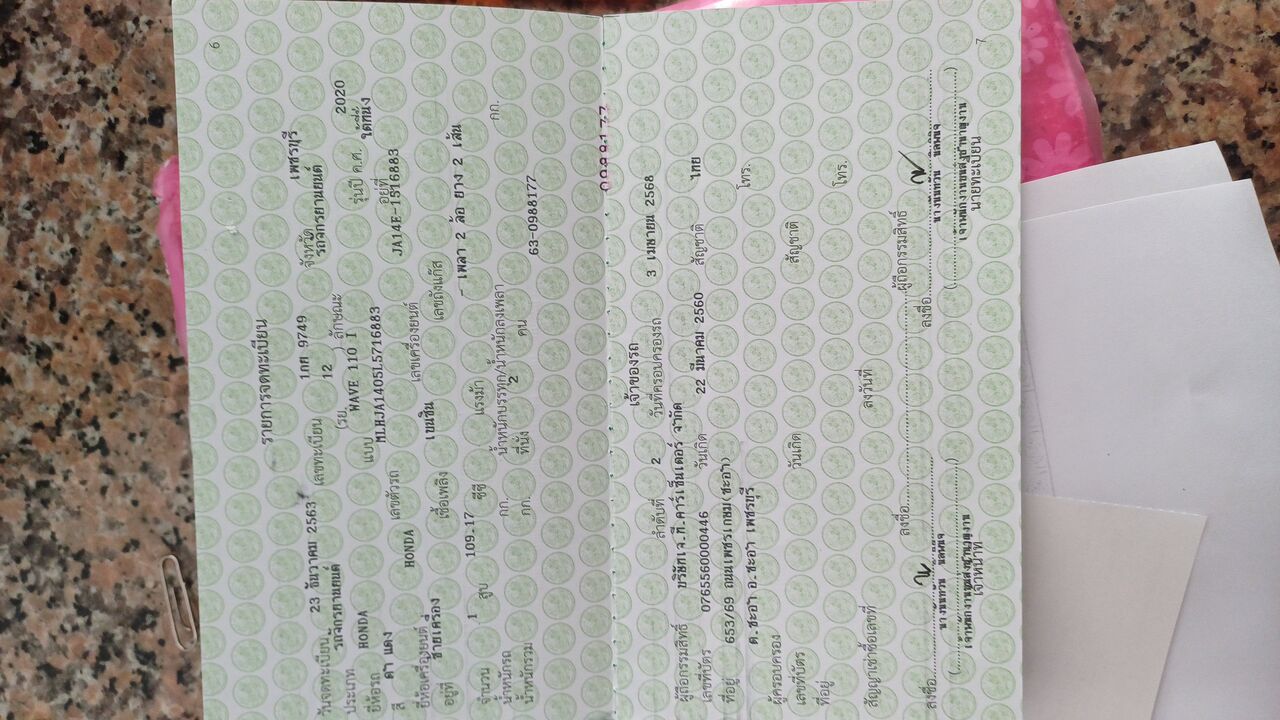 6
รายการจดทะเบียน
วันจดทะเบียน 23 ธันวาคม 2563 เลขทะเบียน 1กก 9749 จังหวัด เพชรบุรี
ประเภท รถจักรยานยนต์ (รย. 12 ) ลักษณะ รถจักรยานยนต์
ยี่ห้อรถ HONDA แบบ WAVE 110 I รุ่นปี ค.ศ. 2020
สี ดำ แดง เลขตัวรถ MLHJA1405L5716883 อยู่ที่ ใต้ที่นั่ง
ยี่ห้อเครื่องยนต์ HONDA เลขเครื่องยนต์ JA14E-1516883
อยู่ที่ ซ้ายเครื่อง เชื้อเพลิง เบนซิน เลขถังแก๊ส
จำนวน 1 สูบ 109.17 ซีซี แรงม้า - เพลา 2 ล้อ ยาง 2 เส้น
น้ำหนักรถ กก. น้ำหนักบรรทุก/น้ำหนักลงเพลา กก.
น้ำหนักรวม กก. ที่นั่ง 2 คน
63-0988177
0988177
7
เจ้าของรถ
ลำดับที่ 2 วันที่ครอบครองรถ 3 เมษายน 2568
ผู้ถือกรรมสิทธิ์ บริษัทเจ.พี.คาร์เซ็นเตอร์ จำกัด
เลขที่บัตร 0765560000446 วันเกิด 22 มีนาคม 2560 สัญชาติ ไทย
ที่อยู่ 653/69 ถนนเพชรเกษม(ชะอำ)
ต.ชะอำ อ.ชะอำ เพชรบุรี โทร.
ผู้ครอบครอง
เลขที่บัตร วันเกิด สัญชาติ
ที่อยู่ โทร.
สัญญาเช่าซื้อเลขที่ ลงวันที่
ลงชื่อ ผู้ถือกรรมสิทธิ์
ลงชื่อ ลงชื่อ
เจ้าหน้าที่ นายทะเบียน